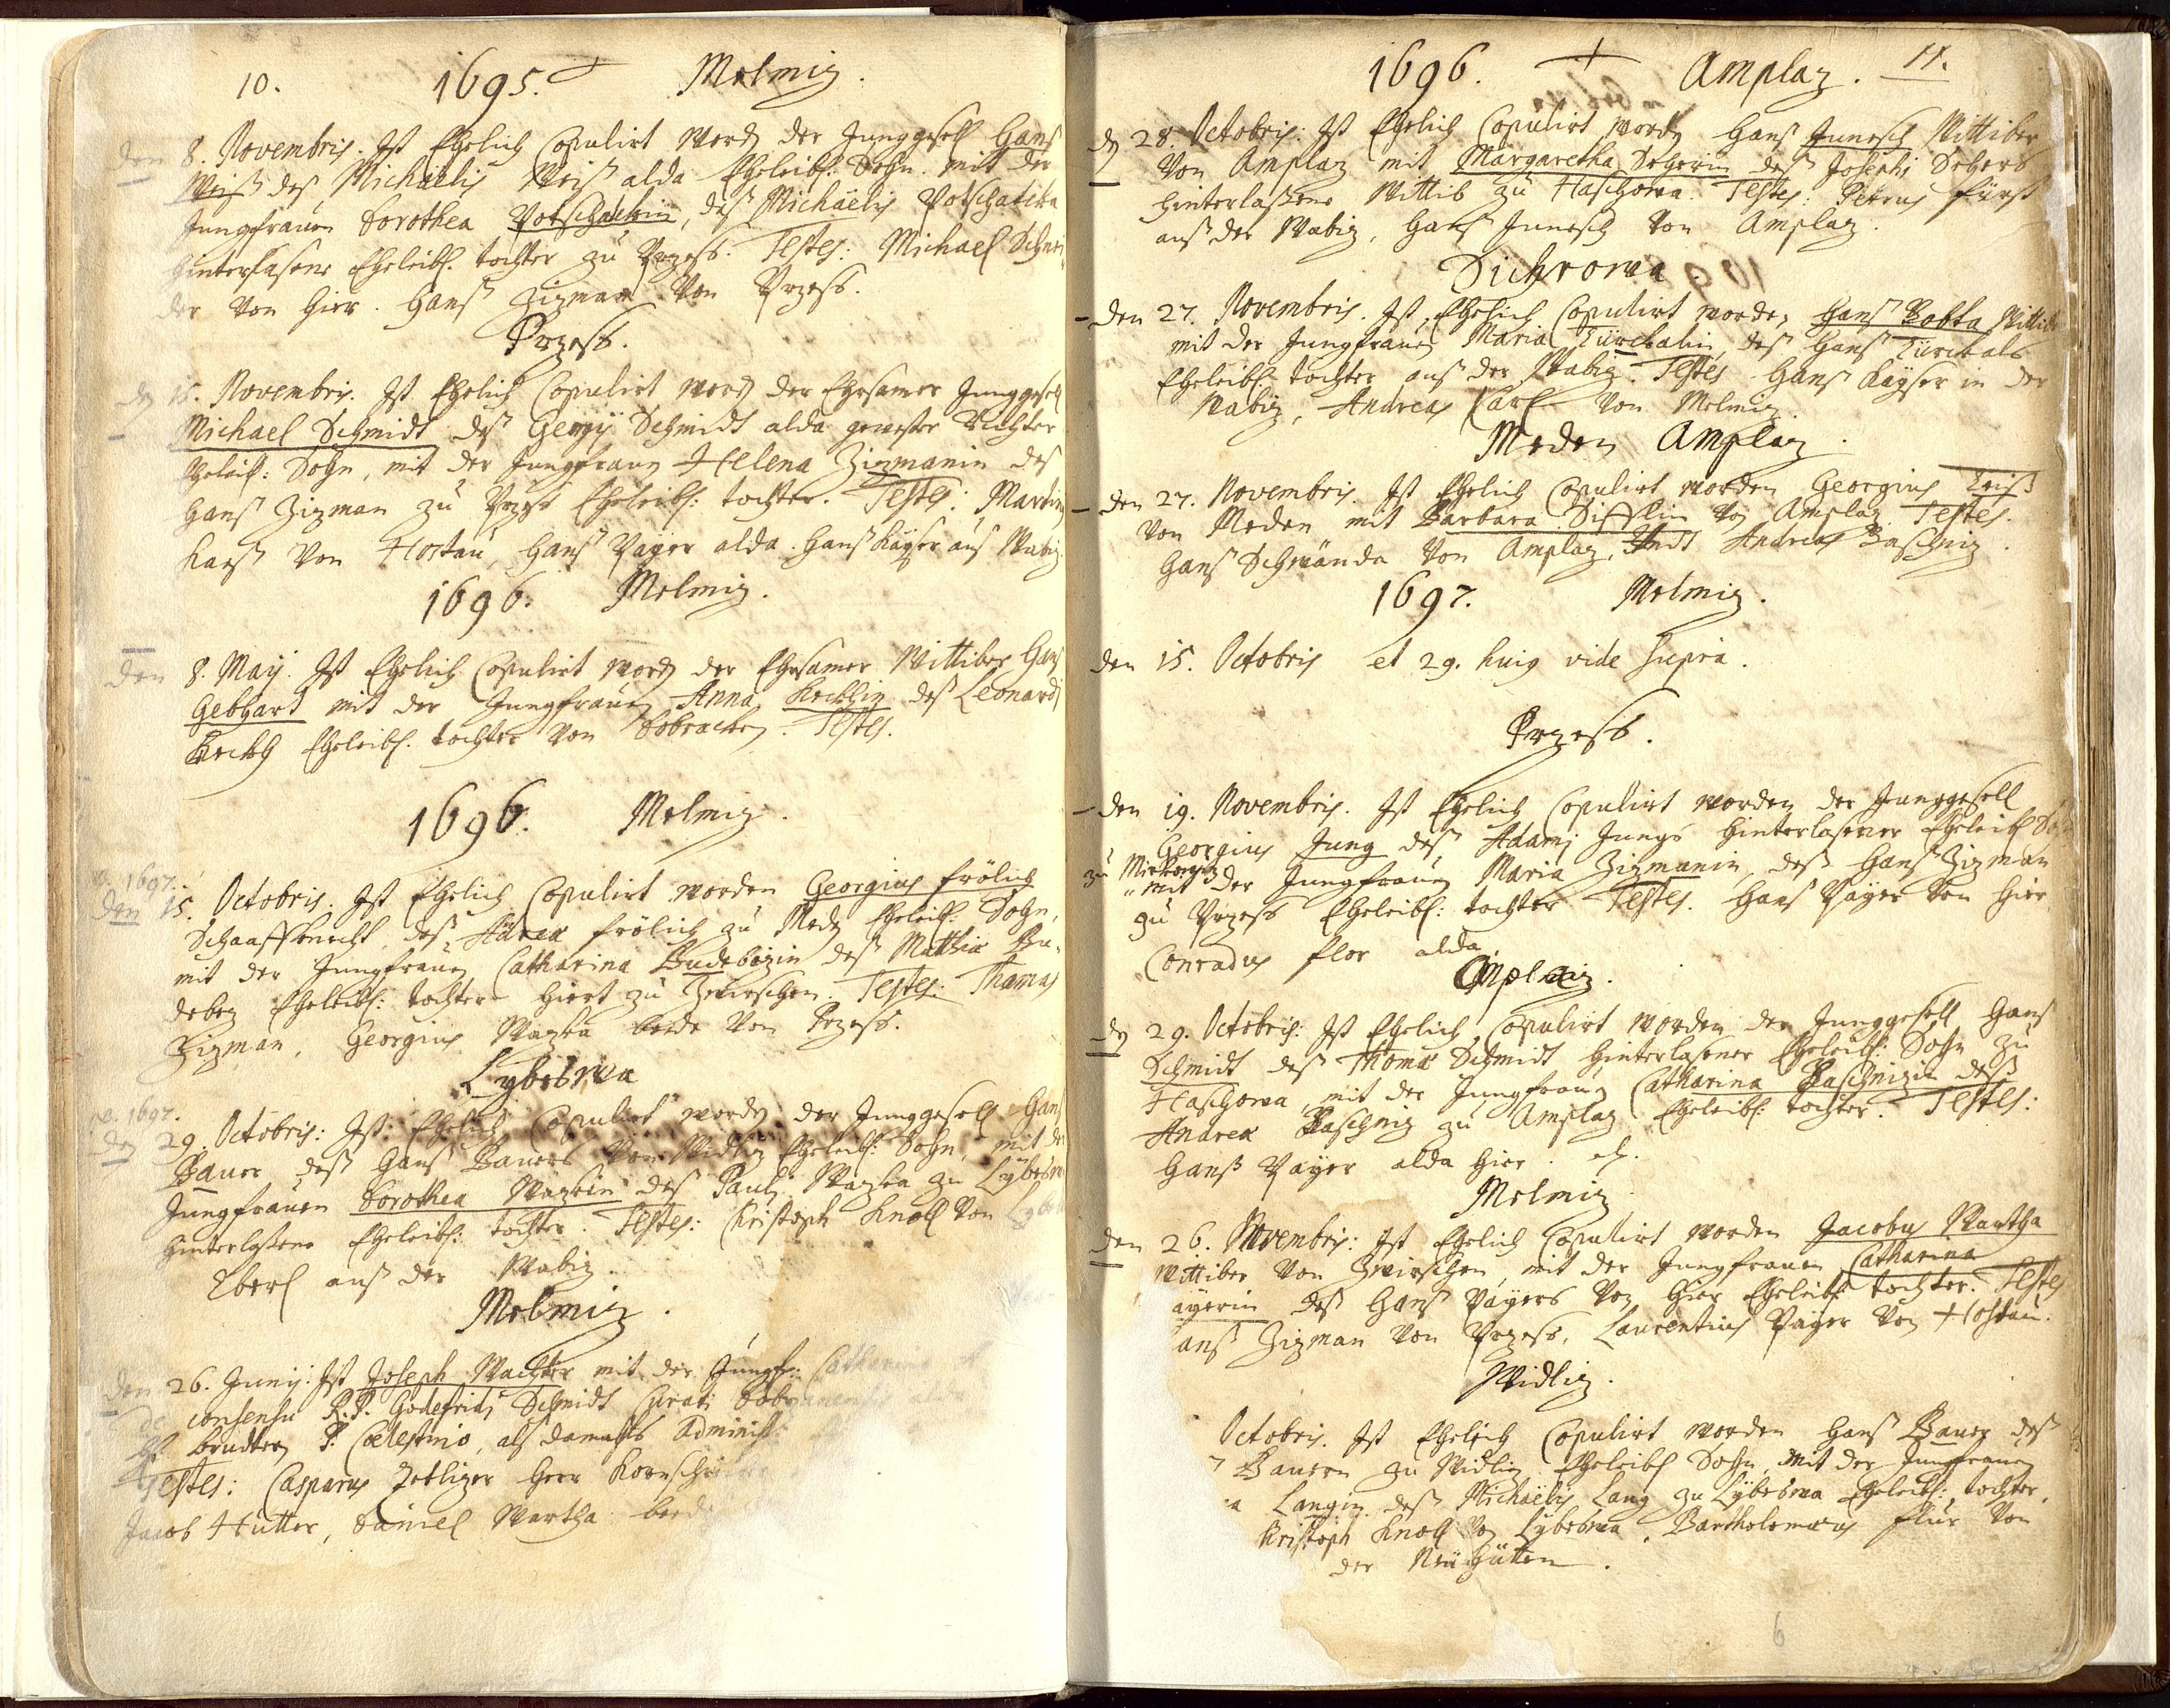 10. 1695. Melmiz.
den 8. Novembris. Ist Ehelich Copulirt word der Junggesell Hanß
Weiß deß Michäelis Weiß alda Eheleibl: Sohn. mit der
Jungfrauen Dorothea, deß Michäelis Potschatka
hinterlasene Eheleibl. tochter zu Przess. Testes: Michael Schnei
der von hier. Hanß Zizman von Przess.
Przess.
den 15. Novembris. Ist Ehelich Copulirt word der Ehrsamer Junggesell
Michael Schmidt deß Georgij Schmidt alda gewester Richter
Eheleibl: Sohn, mit der Jungfrauen Helena Zizmanin des
Hanß Zizman zu Przess Eheleibl: tochter. Testes: Martin
von Hostau, Hanß Payer alda. Hanß Kayser auß Wabiz
1696. Melmiz.
den 8. Maij. Ist Ehelich Copulirt word der Ehrsamer Wittiber Hanß
Gebhart mit der Jungfrauen Anna deß Leonardi
Eheleibl. tochter von Testes.
1696. Melmiz.
v. 1697.
den 15. Octobris. Ist Ehelich Copulirt worden Georgius frölich
Schaaffknecht, deß Andreæ frölich zu Eheleibl: Sohn,
mit der Jungfrauen Catharina deß Matthiæ Bu-
Eheleibl: tochter Hiert zu Zwirschen. Testes: Thamas
Zizman, Georgius Wazka beede von Przess.
Lybeswa
v. 1697.
den 29. Octobris: Ist: Ehelich Copulirt word der Junggesell Hanß
Bauer, deß Hanß Bauers von Widliz Eheleibl: Sohn, mit der
Jungfrauen Dorothea Wazkin deß Pauli Wazka zu Lybeswa
hinterlaßene Eheleibl: tochter. Testes: Christoph Knoll von
Eberl auß der Wabiz.
Melmiz.
den 26. Junij: Ist Joseph Wachter mit der Jungfr: Catharina
consensu R.P. Godefridi Schmidt Curati
P. Cœlestino, alß damahls Administ
Testes: Casparus Zetlizer Herr
Jacob Hutter, Daniel Wartha beede
1696. Amplaz. 11.
den 28. Octobris: Ist Ehelich Copulirt word Hanß Wittiber
von Amplaz mit Margaretha deß Josephi
hinterlaßene Wittib zu Haschowa. Testes: Petrus fürst
auß der Wabiz, Hanß von Amplaz.
Dichrowa
den 27. Novembris. Ist Ehelich Copulirt worden Hanß Bobka Wittiber
mit der Jungfrauen Maria deß Hanß
Eheleibl. tochter auß der Wabiz. Testes Hanß Kayser in der
Wabiz, Andreas Karl von Melmiz.
Meden Amplaz.
den 27. Novembris. Ist Ehelich Copulirt worden Georgius
von Meden mit Barbara von Amplaz. Testes.
Hanß Schwända von Amplaz, Undt Andreas Baschniz.
1697. Melmiz.
den 15. Octobris et 29. huius vide supra.
Przess.
den 19. Novembris. Ist Ehelich Copulirt worden der Junggesell
Georgius Jung deß Adami Jungs hinterlasener Eheleibl Sohn
zu
mit der Jungfrauen Maria Zizmanin, deß Hanß Zizman
zu Przess Eheleibl: tochter Testes. Hanß Payer von hier
Conradus flor alda.
Amplaz.
den 29. Octobris: Ist Ehelich Copulirt worden der Junggesell Hanß
Schmidt deß Thomæ Schmidt hinterlasener Eheleibl: Sohn zu
Haschowa, mit der Jungfrauen Catharina Baschnizin deß
Andreæ Baschniz zu Amplaz Eheleibl: tochter. Testes:
Hanß Payer alda hier.
Melmiz
den 26. Novembris: Ist Ehelich Copulirt worden Jacobus Wartha
Wittiber von Zwirschen, mit der Jungfrauen Catharina
ayerin deß Hanß Payers von hier Eheleibl tochter. Testes
anß Zizman von Przess, Laurentius Payer von Hostau.
Widliz.
Octobris. Ist Ehelich Copulirt worden Hanß Bauer deß
Bauern zu Widliz Eheleibl Sohn, mit der Jungfrauen
a Langin deß Michäelis Lang zu Lybeswa Eheleibl: tochter.
Christoph Knoll von Lybeswa, Bartholomæus flür von
der Neühütten.
6